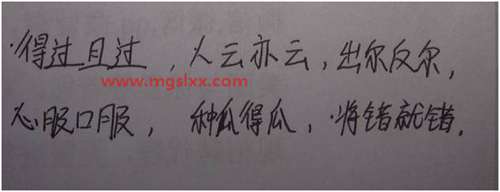 ·得过且过，人云亦云，出尔反尔，
www.mgslxx.com
心服口服，种瓜得瓜，将错就错。